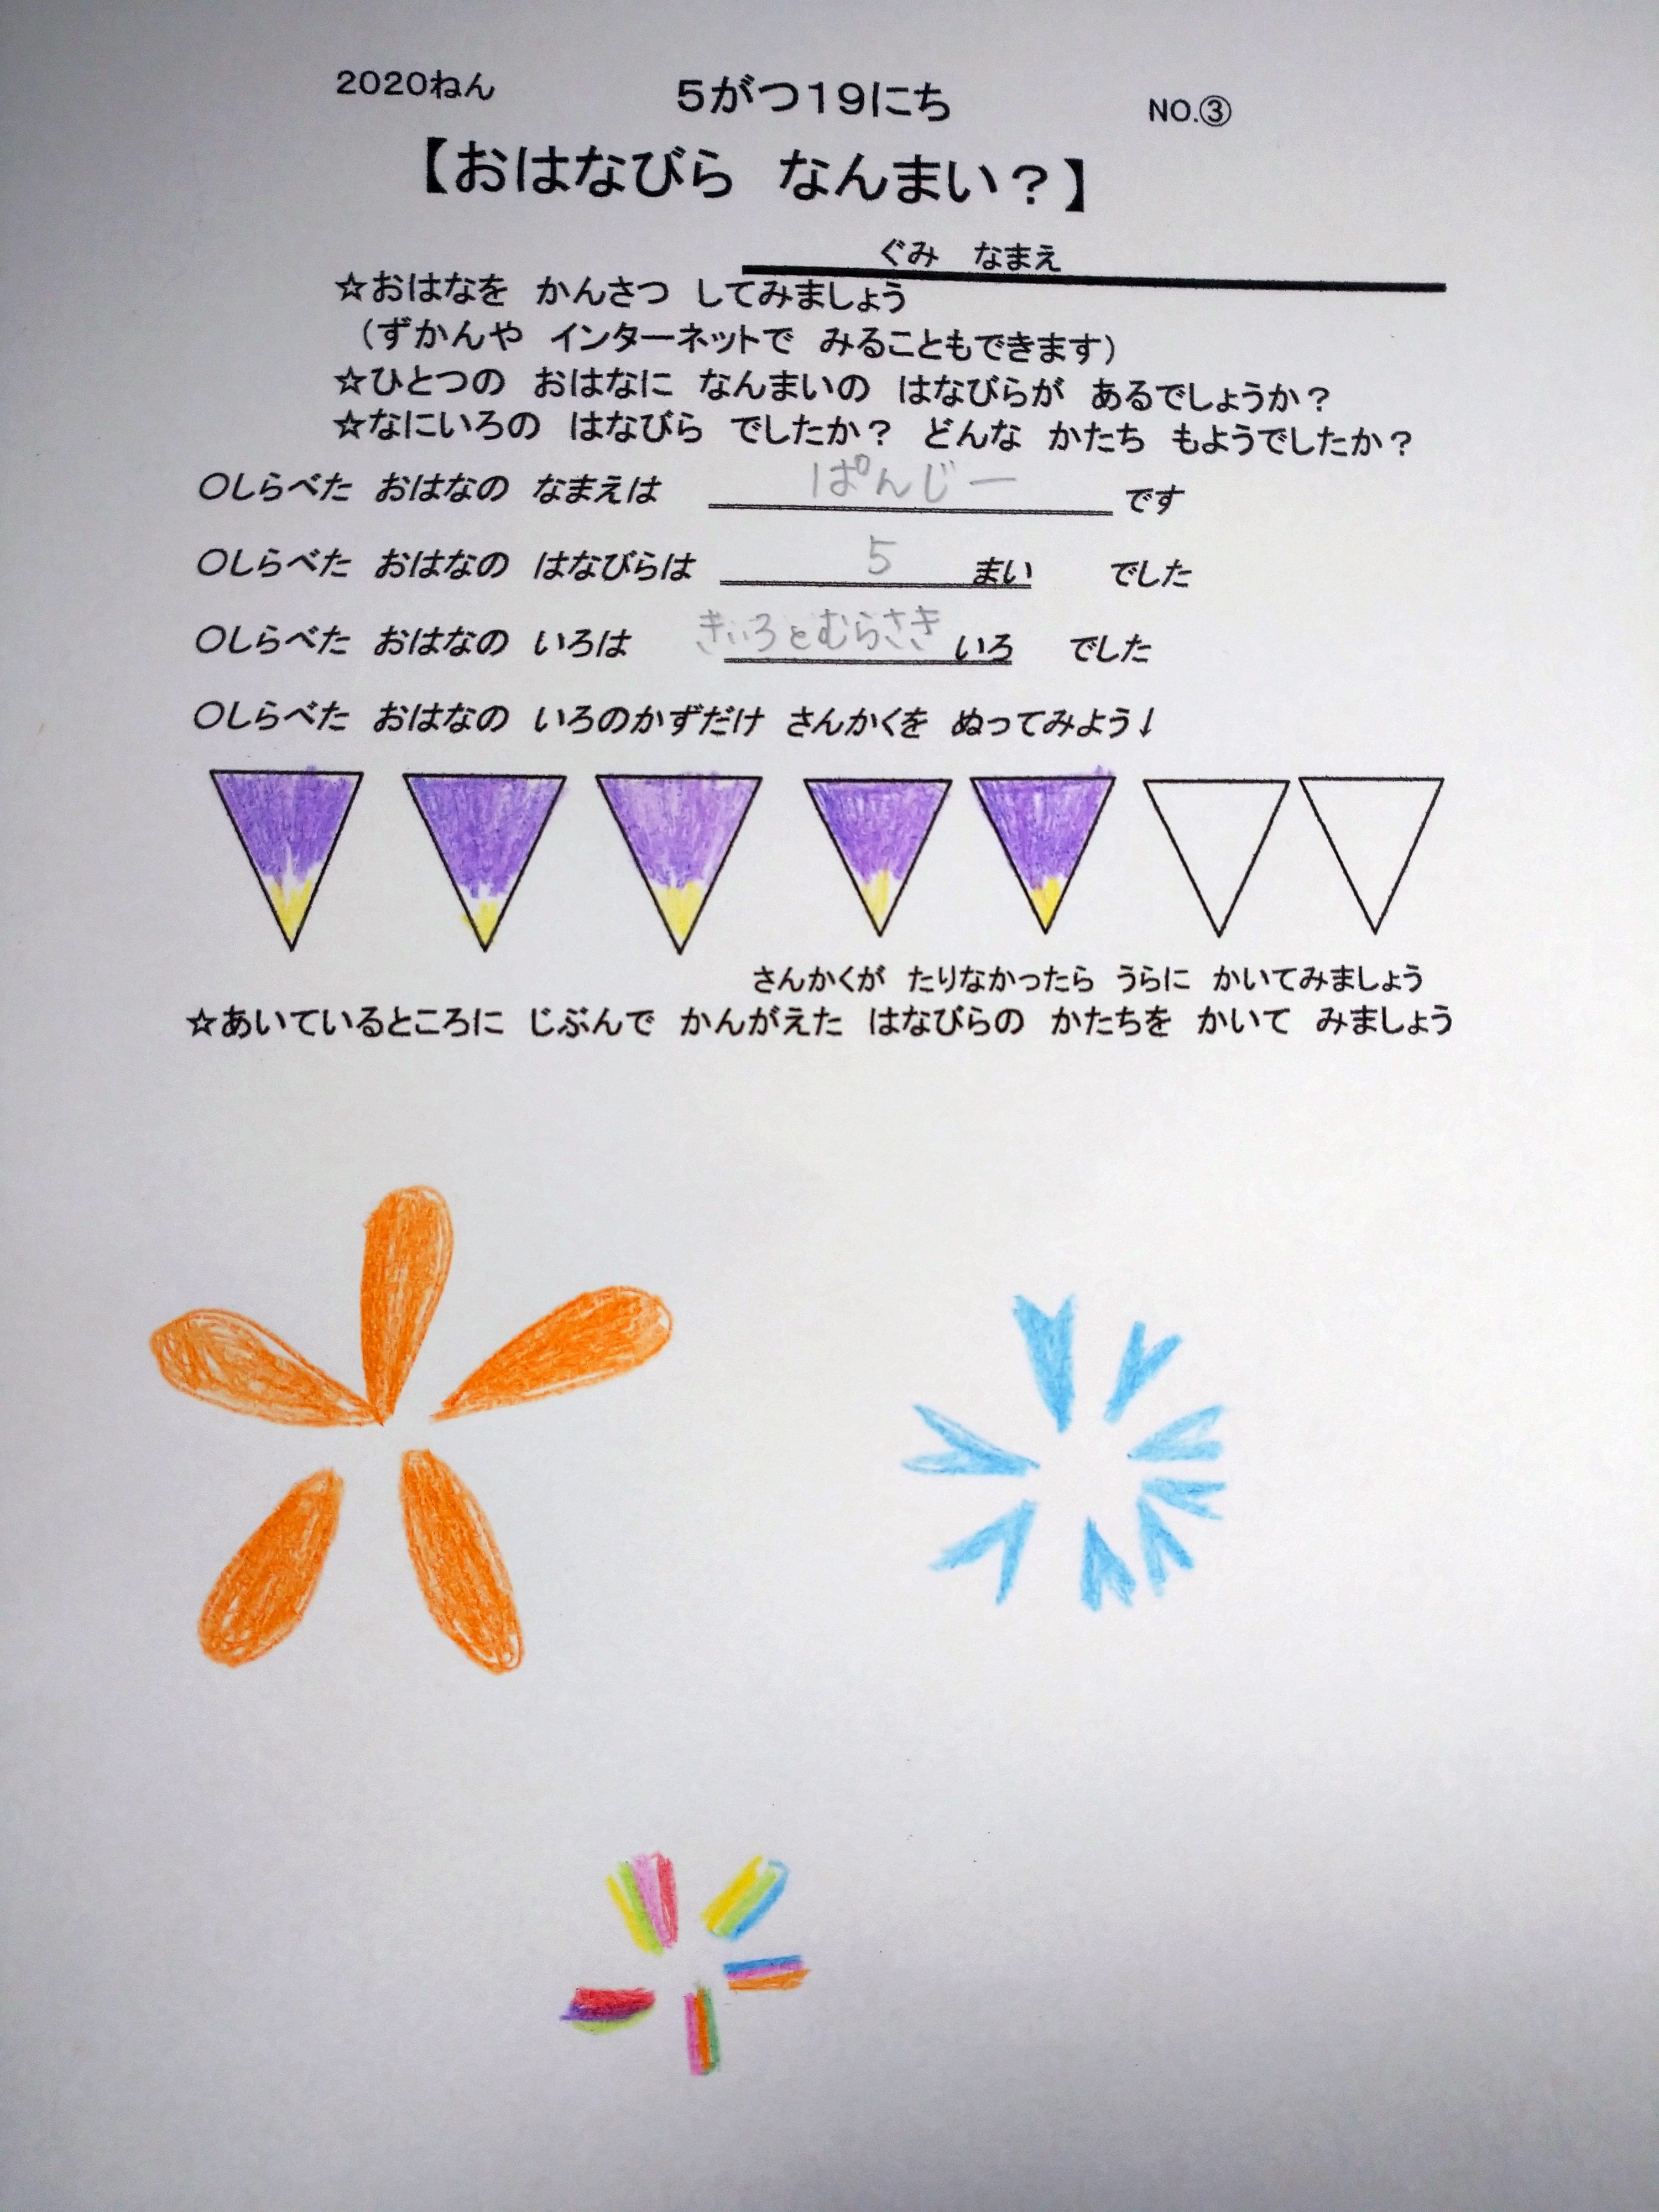 2020ねん 5がつ19にち NO.③
【おはなびら なんまい？】
ぐみ なまえ
☆おはなを かんさつ してみましょう
（ずかんや インターネットで みることもできます）
☆ひとつの おはなに なんまいの はなびらが あるでしょうか？
☆なにいろの はなびら でしたか？ どんな かたち もようでしたか？
○しらべた おはなの なまえは ぱんじー です
○しらべた おはなの はなびらは 5 まい でした
○しらべた おはなの いろは きいろとむらさき いろ でした
○しらべた おはなの いろのかずだけ さんかくを ぬってみよう↓
さんかくが たりなかったら うらに かいてみましょう
☆あいているところに じぶんで かんがえた はなびらの かたちを かいて みましょう